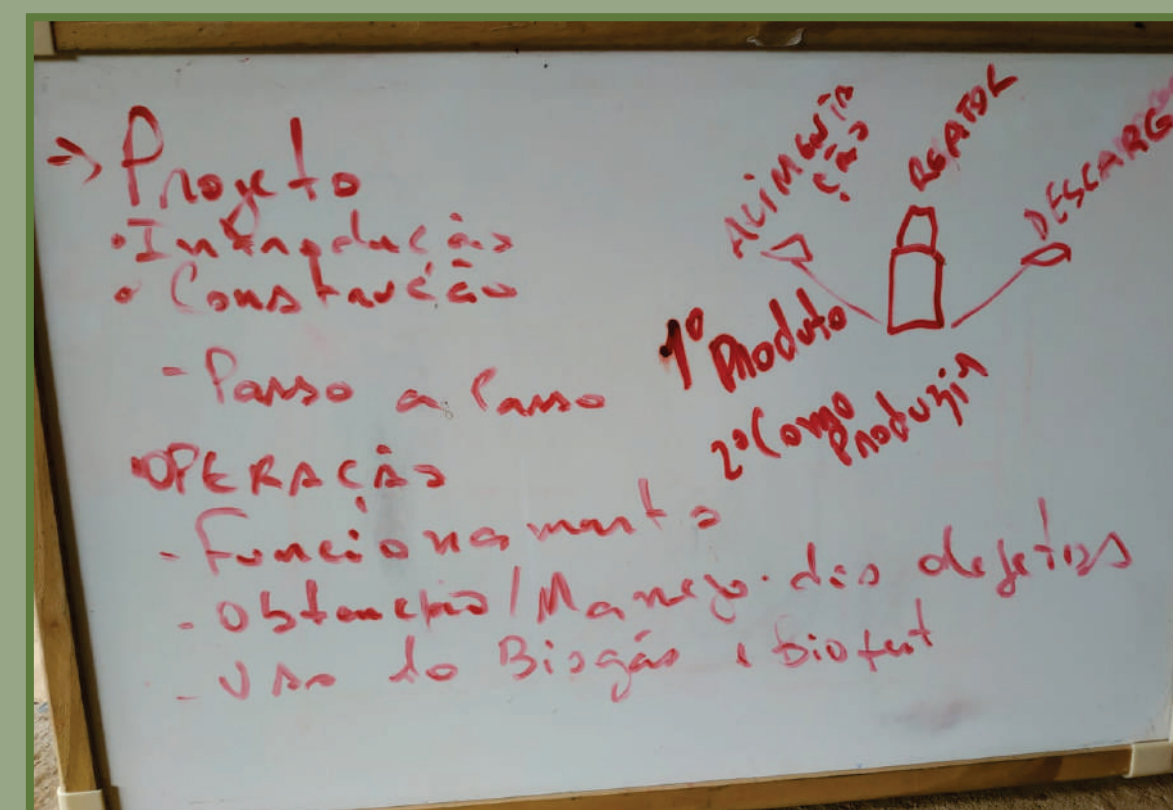 → Projeto
• Introdução
• Construção
- Passo a Passo
• OPERAÇÃO
- Funcionamento
- Obtenção/Manejo dos dejetos
- Uso do Biogás e biofert
ALIMENTA
ÇÃO
REATOR
DESCARGA
1º Produto
2º Como
Produzir